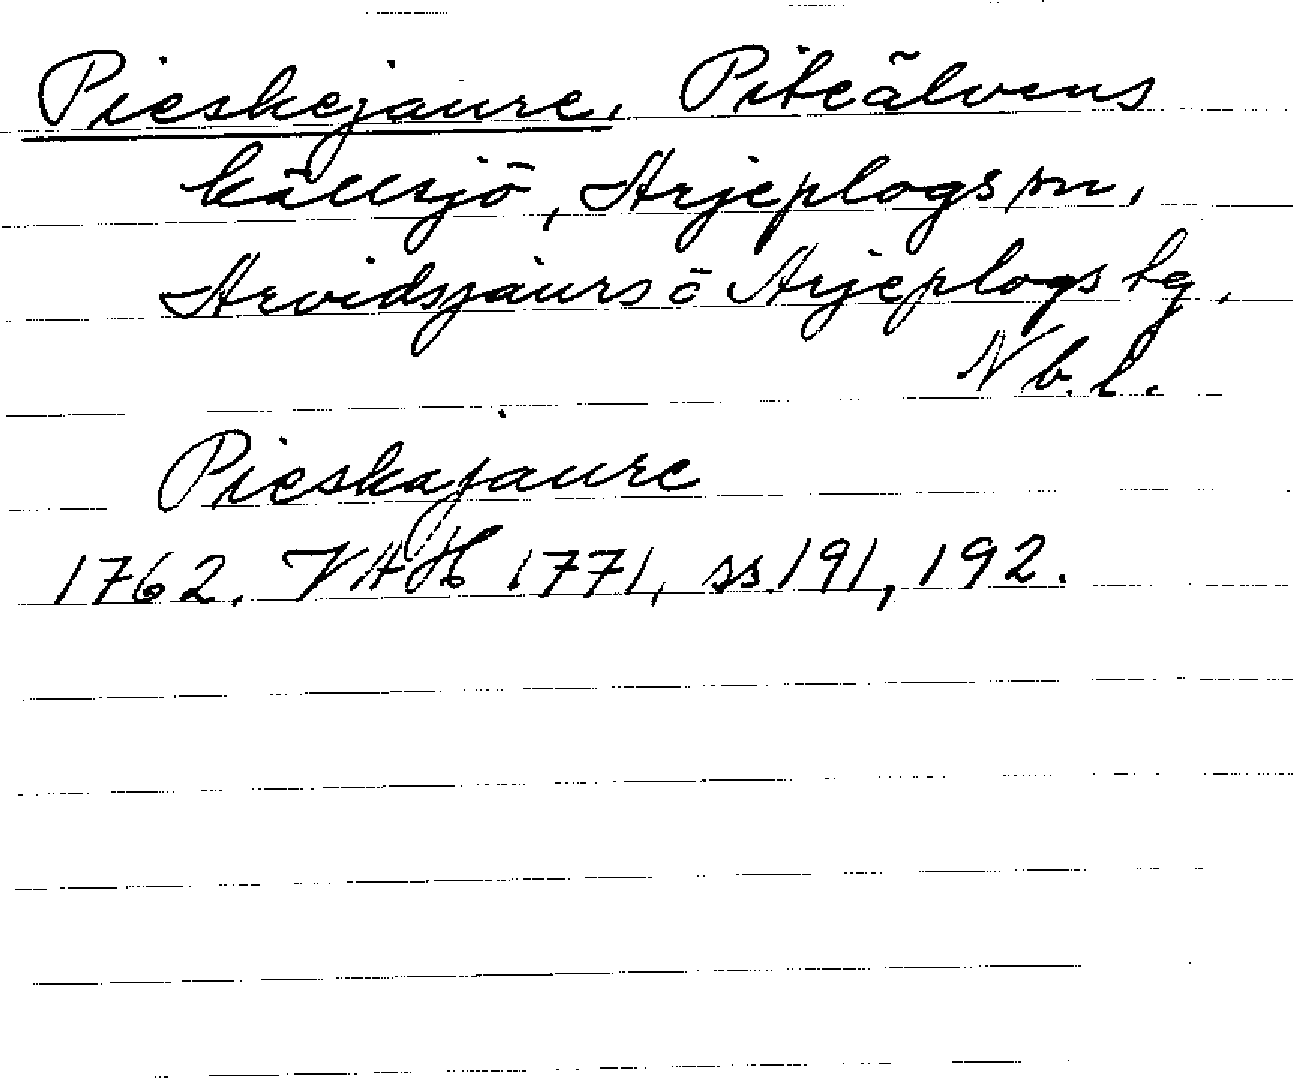 Pieskejaure. Piteälvens
källsjö, Arjeplogs sn,
Arvidsjaurs o Arjeplogs tg,
Nb. l.
Pieskajaure
1762. VAH 1771, ss. 191, 192.